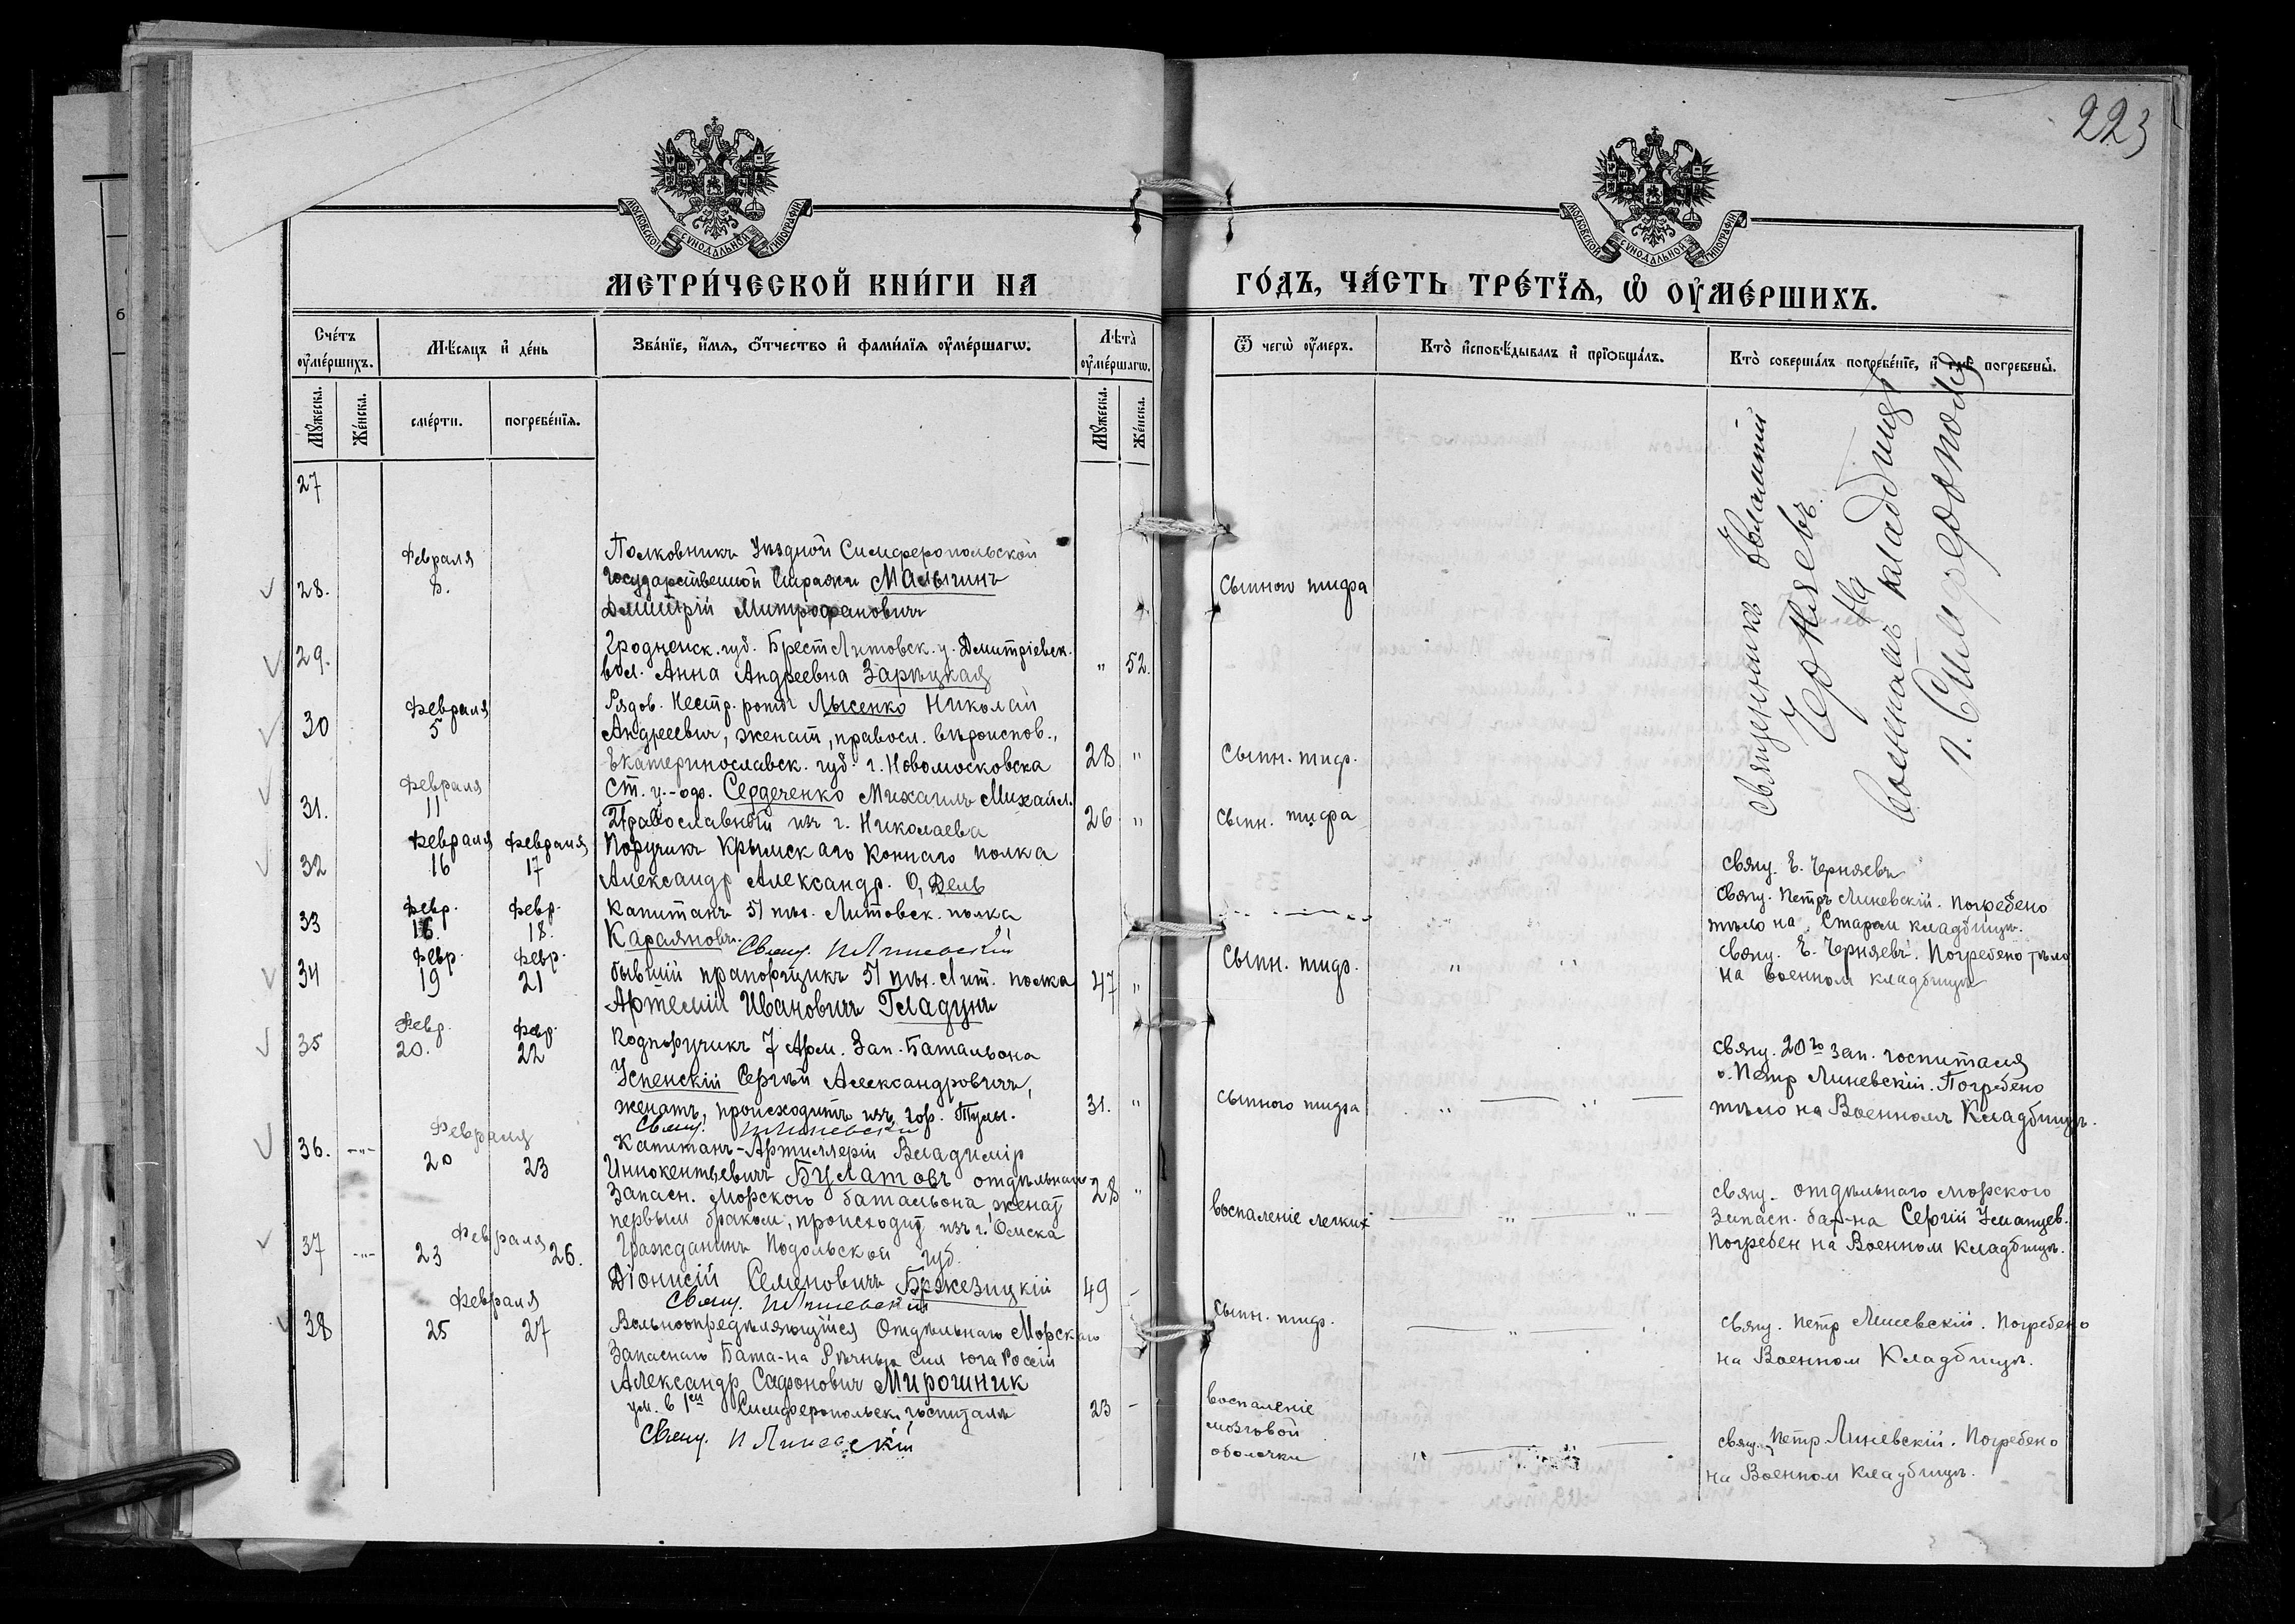 223
МОСКОВСКОЙ СѴНОДАЛЬНОЙ ТИПОГРАФІИ
МОСКОВСКОЙ СѴНОДАЛЬНОЙ ТИПОГРАФІИ
МЕТРИ́ЧЕСКОЙ КНИ́ГИ НА
ГО́ДЪ, ЧА́СТЬ ТРЕ́ТІѦ, Ѽ ОУ҆МЕ́РШИХЪ.
Сче́тъ оу҆ме́ршихъ.
Мѣ́сяцъ и҆ де́нь
Зва́нїе, и҆́мѧ, ѻ҆́тчество и҆ фами́лїѧ оу҆ме́ршагѡ.
Лѣта̀ оу҆ме́ршагѡ.
Ѿ чегѡ̀ оу҆́меръ.
Кто̀ и҆сповѣ́дывалъ и҆ прїѻбща́лъ.
Кто̀ соверша́лъ погребе́нїе, и҆ гдѣ̀ погребены̀.
Мꙋ́жеска.
Же́нска.
сме́рти.
погребе́нїѧ.
Мꙋ́жеска.
Же́нска.
27
28.
Февраля
8.
Полковникъ Уѣздной Симферопольской
Государственной Стражи Малыгинъ
Дмитрій Митрофановичъ
Сыпного тифа
Священникъ Евлампій
Черняевъ.
На
военномъ кладбищѣ
г. Симферополя
29.
Гродненск. губ. Брест Литовск. у. Дмитріевск.
вол. Анна Андреевна Зарѣцкая
" 52.
30
Февраля
5
Рядов. Нестр. роты Лысенко Николай
Андреевич, женат, правосл. вѣроиспов.,
Екатеринославск. губ. г. Новомосковска
28 "
Сыпн. тиф.
31.
Февраля
11
Ст. у.-оф. Сердеченко Михаилъ Михайл.
Православный изъ г. Николаева
26 "
Сыпн. тифа
32
Февраля
16
Февраля
17
Поручикъ Крымскаго Коннаго полка
Александр Александр. О, Дель
свящ. Е. Черняевъ
33
Февр.
16.
Февр.
18.
Капитанъ 51 пѣх. Литовск. полка
Караяновъ. Свящ. П Линевскій
свящ. Петръ Линевскій. Погребено
тѣло на Старом кладбищѣ.
34
Февр.
19
Февр.
21
бывшій прапорщикъ 51 пѣх. Лит. полка
Артемій Ивановичъ Гладунъ
47 "
Сыпн. тиф.
" "
свящ. Е. Черняевъ. Погребено тѣло
на Военном кладбищѣ
35
Февр.
20.
Февр.
22
Подпоручикъ 7 Арм. Зап. Батальона
Успенскій Сергѣй Александровичъ,
женатъ, происходитъ изъ гор. Тулы.
Свящ. П Линевскій
31. "
сыпного тифа
" "
свящ. 20го зап. госпиталя
о. Петр Линевскій. Погребено
тѣло на Военномъ Кладбищѣ.
36. -"-
Февраля
20 23
Капитанъ-Артиллеріи Владиміръ
Иннокентьевичъ Булатовъ отдѣльнаго
Запасн. Морского батальона, женат
первым браком, происходит изъ г. Омска
28 "
воспаленіе легких
" "
свящ. отдѣльнаго морского
Запасн. бат-на Сергій
Погребен на Военном кладбищѣ.
37 -"-
Февраля
23 26.
Гражданинъ Подольской губ.
Діонисій Семеновичъ Бржезицкій
Свящ. П Линевскій
49 -
Сыпн. тиф.
"
свящ. Петр Линевскій. Погребено
на Военном Кладбищѣ.
38
Февраля
25 27
Вольноопредѣляющійся Отдѣльнаго Морского
Запаснаго Бата-на Рѣчныхъ Сил юга Россіи
Александр Сафонович Мирошник
ум. в 1ем Симферопольск. госпиталѣ
Свящ. П Линевскій
23 -
воспаленіе
мозговой
оболочки
"
свящ. Петр Линевскій. Погребено
на Военном кладбищѣ.